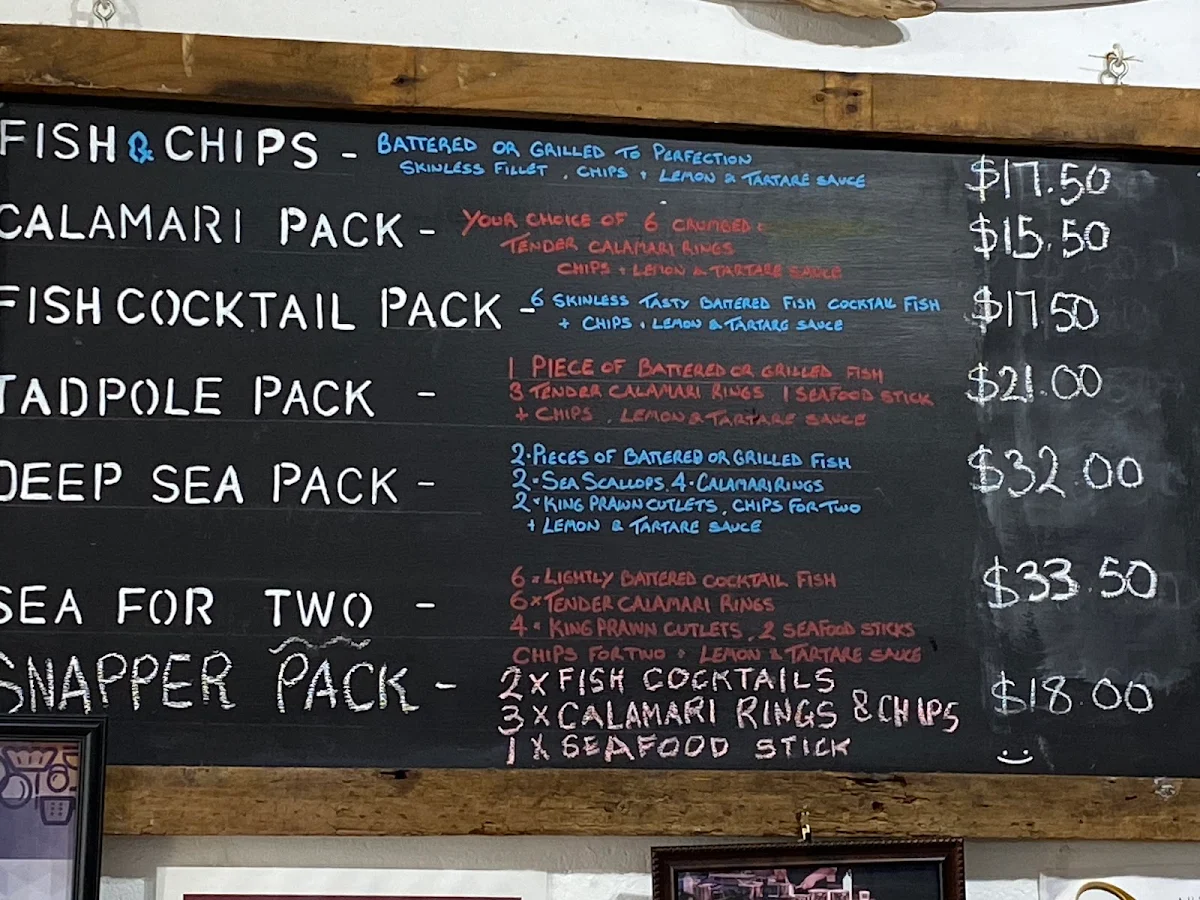 FISH & CHIPS - BATTERED OR GRILLED TO PERFECTION
SKINLESS FILLET . CHIPS + LEMON & TARTARE SAUCE
$17.50
CALAMARI PACK - YOUR CHOICE OF 6 CRUMBED
TENDER CALAMARI RINGS
CHIPS + LEMON & TARTARE SAUCE
$15.50
FISH COCKTAIL PACK - 6 SKINLESS TASTY BATTERED FISH COCKTAIL FISH
+ CHIPS + LEMON & TARTARE SAUCE
$17.50
TADPOLE PACK - 1 PIECE OF BATTERED OR GRILLED FISH
3 TENDER CALAMARI RINGS 1 SEAFOOD STICK
+ CHIPS . LEMON & TARTARE SAUCE
$21.00
DEEP SEA PACK - 2 · PIECES OF BATTERED OR GRILLED FISH
2 · SEA SCALLOPS, 4 · CALAMARI RINGS
2 × KING PRAWN CUTLETS, CHIPS FOR TWO
+ LEMON & TARTARE SAUCE
$32.00
SEA FOR TWO - 6 × LIGHTLY BATTERED COCKTAIL FISH
6 × TENDER CALAMARI RINGS
4 × KING PRAWN CUTLETS, 2 SEAFOOD STICKS
CHIPS FOR TWO + LEMON & TARTARE SAUCE
$33.50
SNAPPER PACK - 2 X FISH COCKTAILS
3 X CALAMARI RINGS & CHIPS
1 X SEAFOOD STICK
$18.00